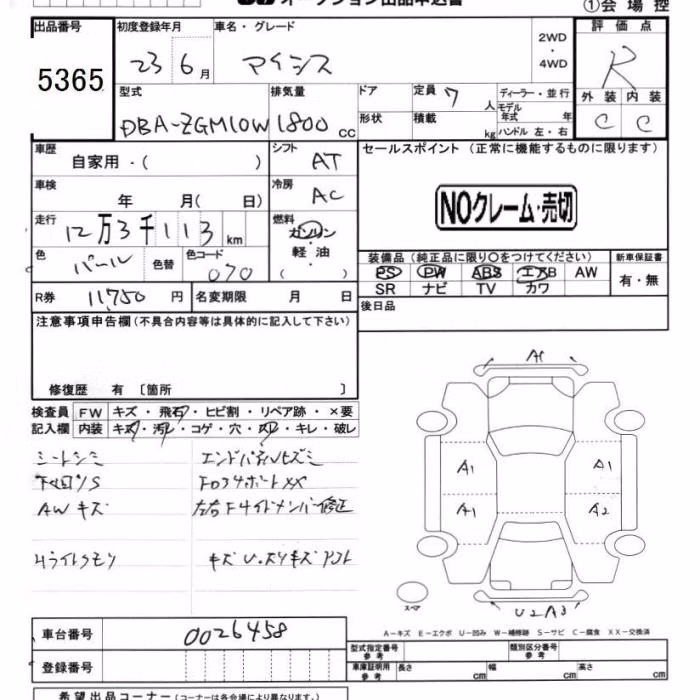 オークション出品申込書 ①会場控
出品番号 初度登録年月 車名・グレード 2WD・4WD 評価点
5365 23 6月 マイシス R
型式 排気量 ドア 定員 7人 ディーラー・並行
外装 内装
DBA-ZGM10W 1800cc 形状 積載 kg モデル年式 年
ハンドル 左・右 C C
車歴 自家用・( ) シフト AT セールスポイント (正常に機能するものに限ります)
車検 年 月( 日) 冷房 AC NOクレーム・売切
走行 12万3千113km 燃料 ガソリン・軽油・( )
色 パール 色替 色コード 070 装備品 (純正品に限り○をつけてください) 新車保証書
PS PW ABS エアB AW 有・無
SR ナビ TV カワ
R券 11750円 名変期限 月 日 後日品
注意事項申告欄 (不具合内容等は具体的に記入して下さい)
修復歴 有 〔箇所 〕
検査員 FW キズ・飛石・ヒビ割・リペア跡・×要
記入欄 内装 キズ・汚レ・コゲ・穴・スレ・キレ・破レ
シートシミ エンドパネルヒズミ
下回リS
AWキズ 左右Fサイドメンバー修正
Hライトクモリ キズU.スリキズ
A1
A1 A1
A1 A2
スペア
U2A3
A-キズ E-エクボ U-凹み W-補修跡 S-サビ C-腐食 XX-交換済
車台番号 0026458
型式指定番号 参考 類別区分番号 参考
登録番号 車庫証明用 参考 長さ cm 幅 cm 高さ cm
希望出品コーナー (コーナーは各会場により異なります。)